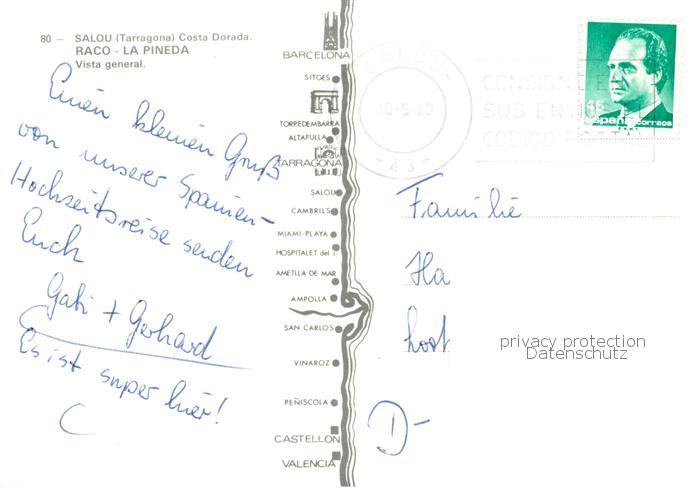 80 — SALOU (Tarragona) Costa Dorada.
RACO - LA PINEDA
Vista general.
Einen kleinen Gruß
von unserer Spanien-
Hochzeitsreise senden
Euch
Gabi + Gerhard
Es ist super hier!
BARCELONA
SITGES
TORREDEMBARRA
ALTAFULLA
TARRAGONA
SALOU
CAMBRILS
MIAMI-PLAYA
HOSPITALET del I.
AMETLLA DE MAR
AMPOLLA
SAN CARLOS
VINAROZ
PEÑISCOLA
CASTELLON
VALENCIA
SALOU
-43-
CONSIGNE E
SUS ENV
CODIGO POSTAL
45
españa correos
Familie
Ha
host
privacy protection
Datenschutz
D-